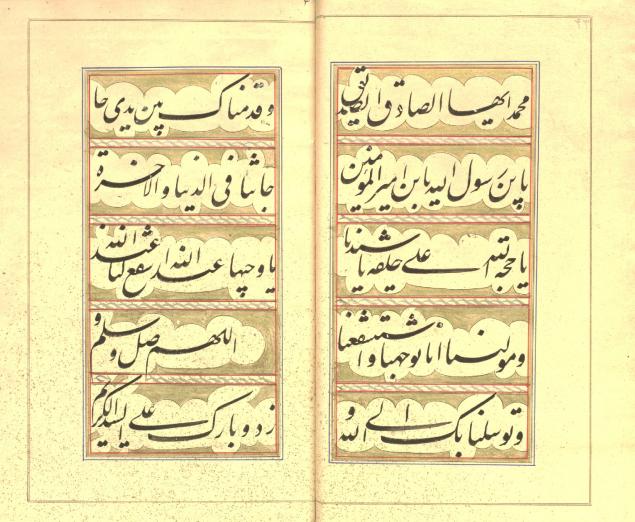 محمد ایها الصادق الصدیق
یابن رسول الله یابن امیر المؤمنین
یا حجة الله علی خلقه یا سیدنا
و مولینا انا توجهنا و استشفعنا
و توسلنا بک الی الله و
و قدمناک بین یدی حا
جاتنا فی الدنیا و الاخرة
یا وجیها عند الله اشفع لنا عند الله
اللهم صل و سلم و
زد و بارک علی السید الکریم